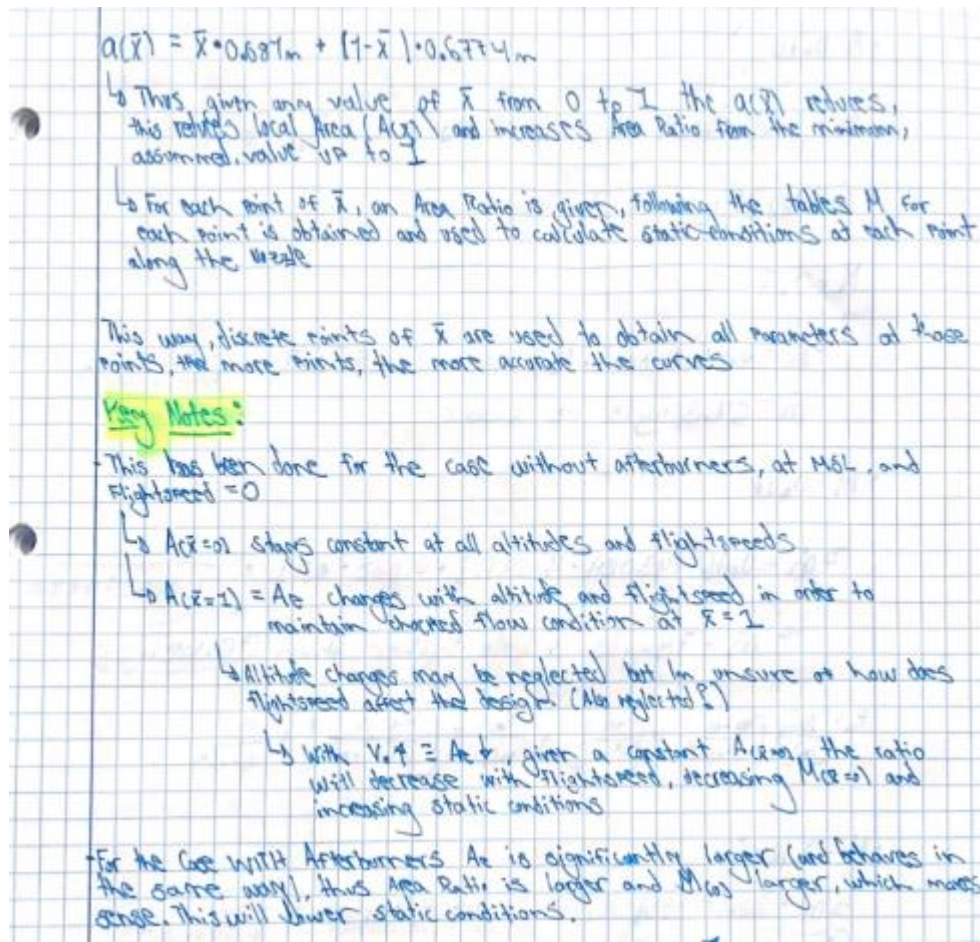 a(x̄) = x̄·0.681m + (1-x̄)·0.6774m
↳ Thus, given any value of x̄ from 0 to 1 the a(x̄) reduces,
this reduces local Area (A(x̄)) and increases Area Ratio from the minimum,
assummed, value up to 1
↳ For each point of x̄, an Area Ratio is given, following the tables M for
each point is obtained and used to calculate static conditions at each point
along the nozzle
This way, discrete points of x̄ are used to obtain all parameters at those
points, the more points, the more accurate the curves
Key Notes:
- This has been done for the case without afterburners, at MSL, and
Flightspeed = 0
↳ A(x̄=0) stays constant at all altitudes and flightspeeds
↳ A(x̄=1) = Ae changes with altitude and flightspeed in order to
maintain chocked flow condition at x̄ = 1
↳ Altitude changes may be neglected but Im unsure of how does
flightspeed affect the design (Also neglected?)
↳ With V₀↑ ≡ Ae↓, given a constant A(x̄=0), the ratio
will decrease with flightspeed, decreasing M(x̄=0) and
increasing static conditions
- For the Case WITH Afterburners Ae is significantly larger (and behaves in
the same way), thus Area Ratio is larger and M(0) larger, which makes
sense. This will lower static conditions.